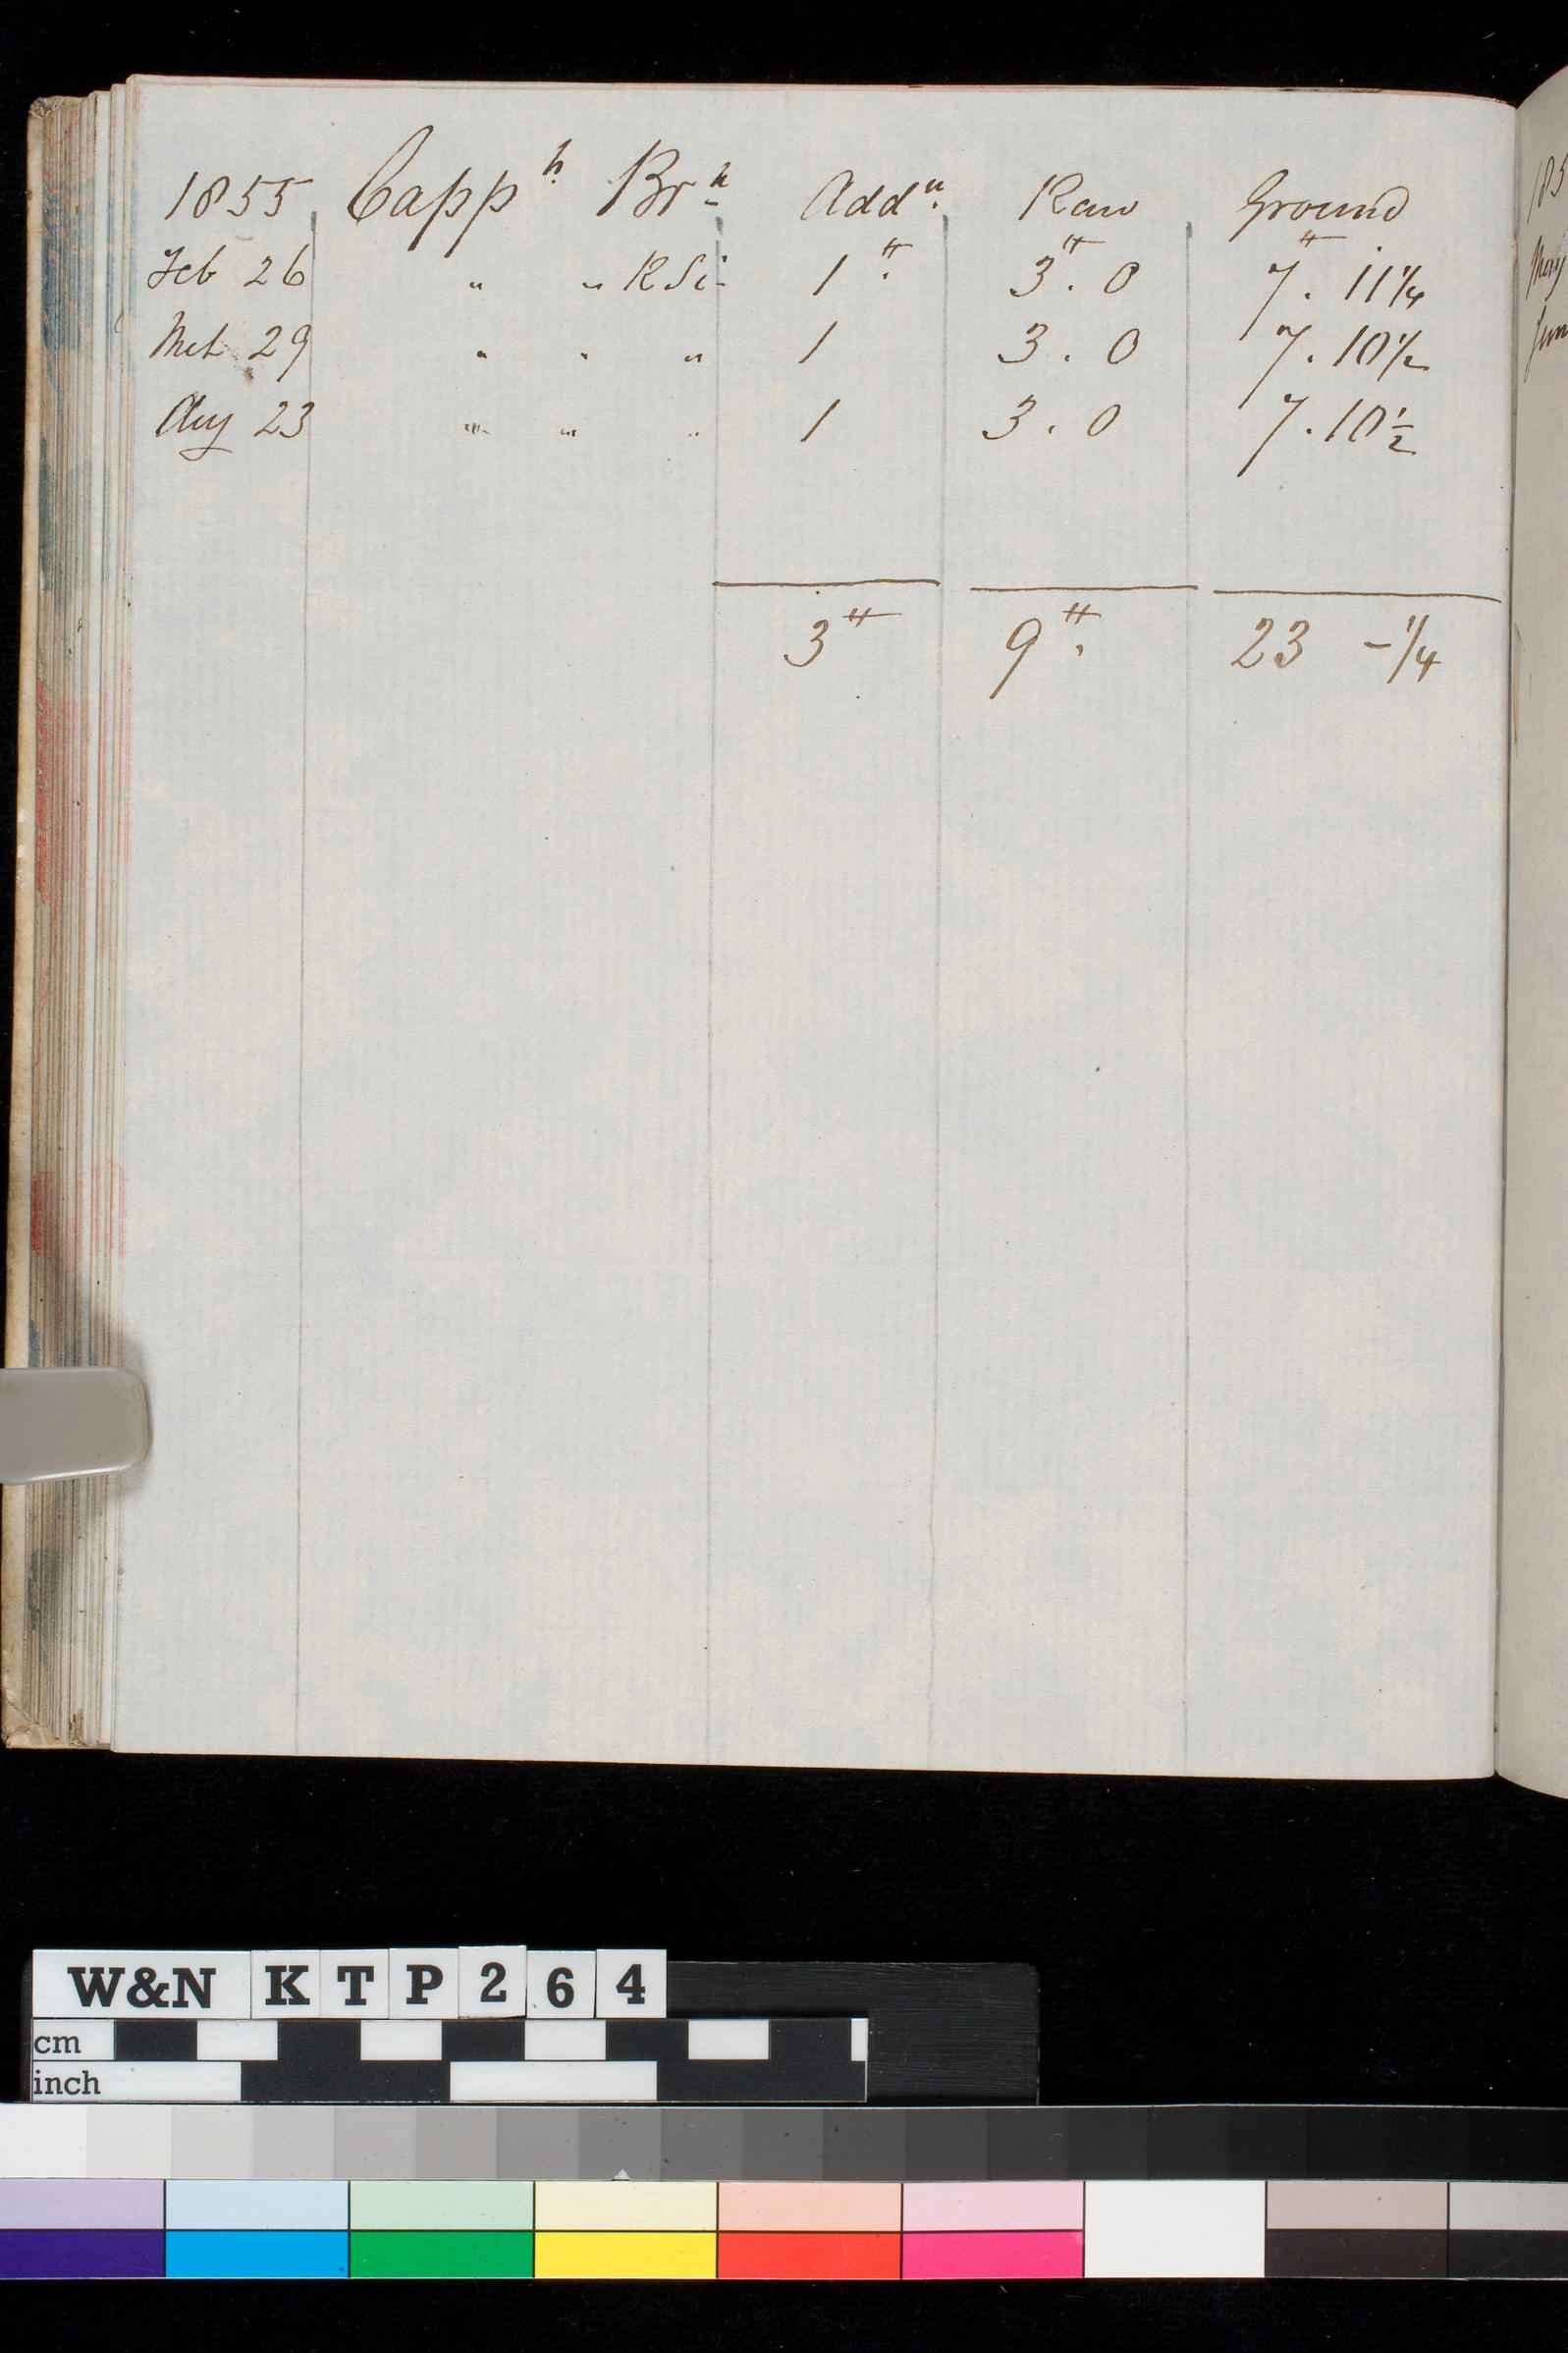 1855 Capp^h. Br^n Add^n. Raw Ground
Feb 26 " " R Si- 1 ℔. 3 ℔. 0 7 ℔. 11 1/4
Mch 29 " " " 1 3 . 0 7 . 10 1/2
Aug 23 " " " 1 3 . 0 7 . 10 1/2
3 ℔ 9 ℔. 23 - 1/4
185
May
Jun
W&N KTP264
cm
inch